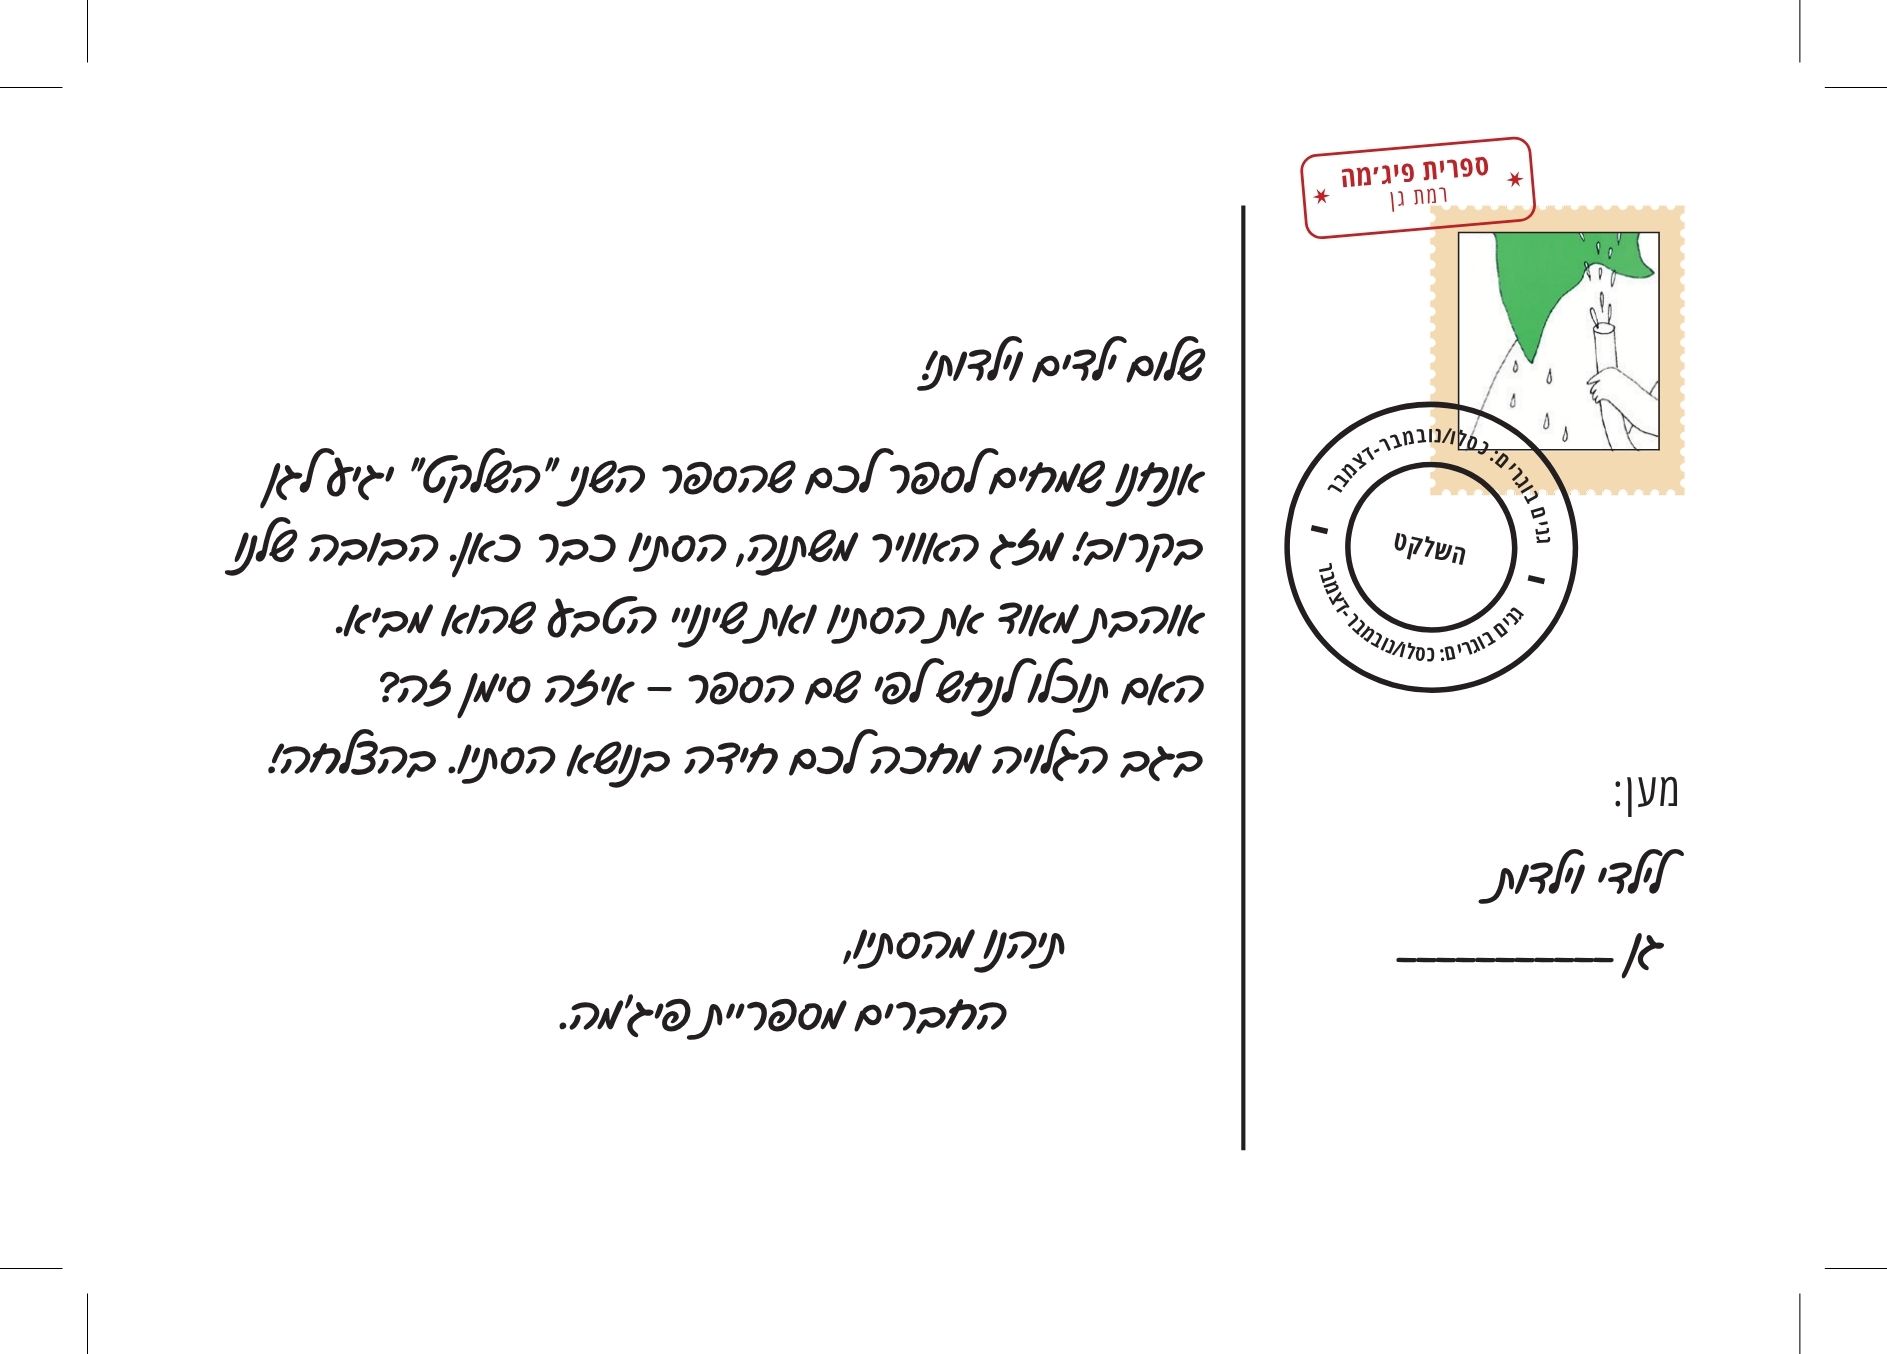 ספרית פיג׳מה
רמת גן
גנים בוגרים: כסלו/נובמבר-דצמבר
השלקט
גנים בוגרים: כסלו/נובמבר-דצמבר
מען:
לילדי וילדות
גן ___________
שלום ילדים וילדות!
אנחנו שמחים לספר לכם שהספר השני "השלקט" יגיע לגן
בקרוב! מזג האוויר משתנה, הסתיו כבר כאן. הבובה שלנו
אוהבת מאוד את הסתיו ואת שינויי הטבע שהוא מביא.
האם תוכלו לנחש לפי שם הספר – איזה סימן זה?
בגב הגלויה מחכה לכם חידה בנושא הסתיו. בהצלחה!
תיהנו מהסתיו,
החברים מספריית פיג'מה.